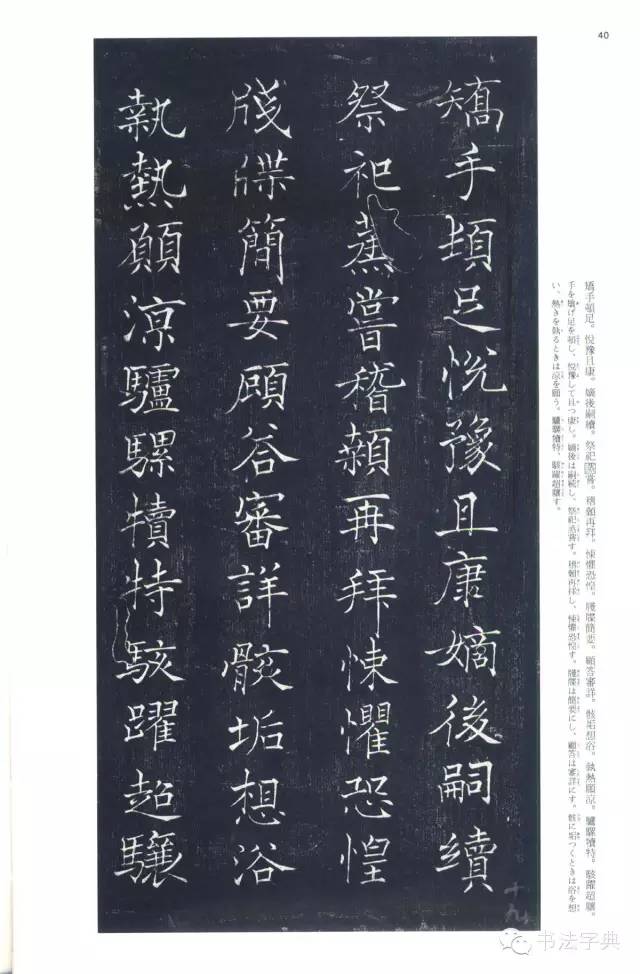 40
矯手頓足悅豫且康嫡後嗣續
祭祀蒸嘗稽顙再拜悚懼恐惶
牋牒簡要顧答審詳骸垢想浴
執熱願涼驢騾犢特駭躍超驤
十九
矯手頓足。悅豫且康。嫡後嗣續。祭祀蒸嘗。稽顙再拜。悚懼恐惶。牋牒簡要。顧答審詳。骸垢想浴。執熱願涼。驢騾犢特。駭躍超驤。
手を矯げ足を頓し、悅豫して且つ康し。嫡後は嗣続し、祭祀蒸嘗す。稽顙再拝し、悚懼恐惶す。牋牒は簡要にし、顧答は審詳にす。骸に垢つくときは浴を想
い、熱きを執るときは涼を願う。驢騾犢特、駭躍超驤す。
书法字典